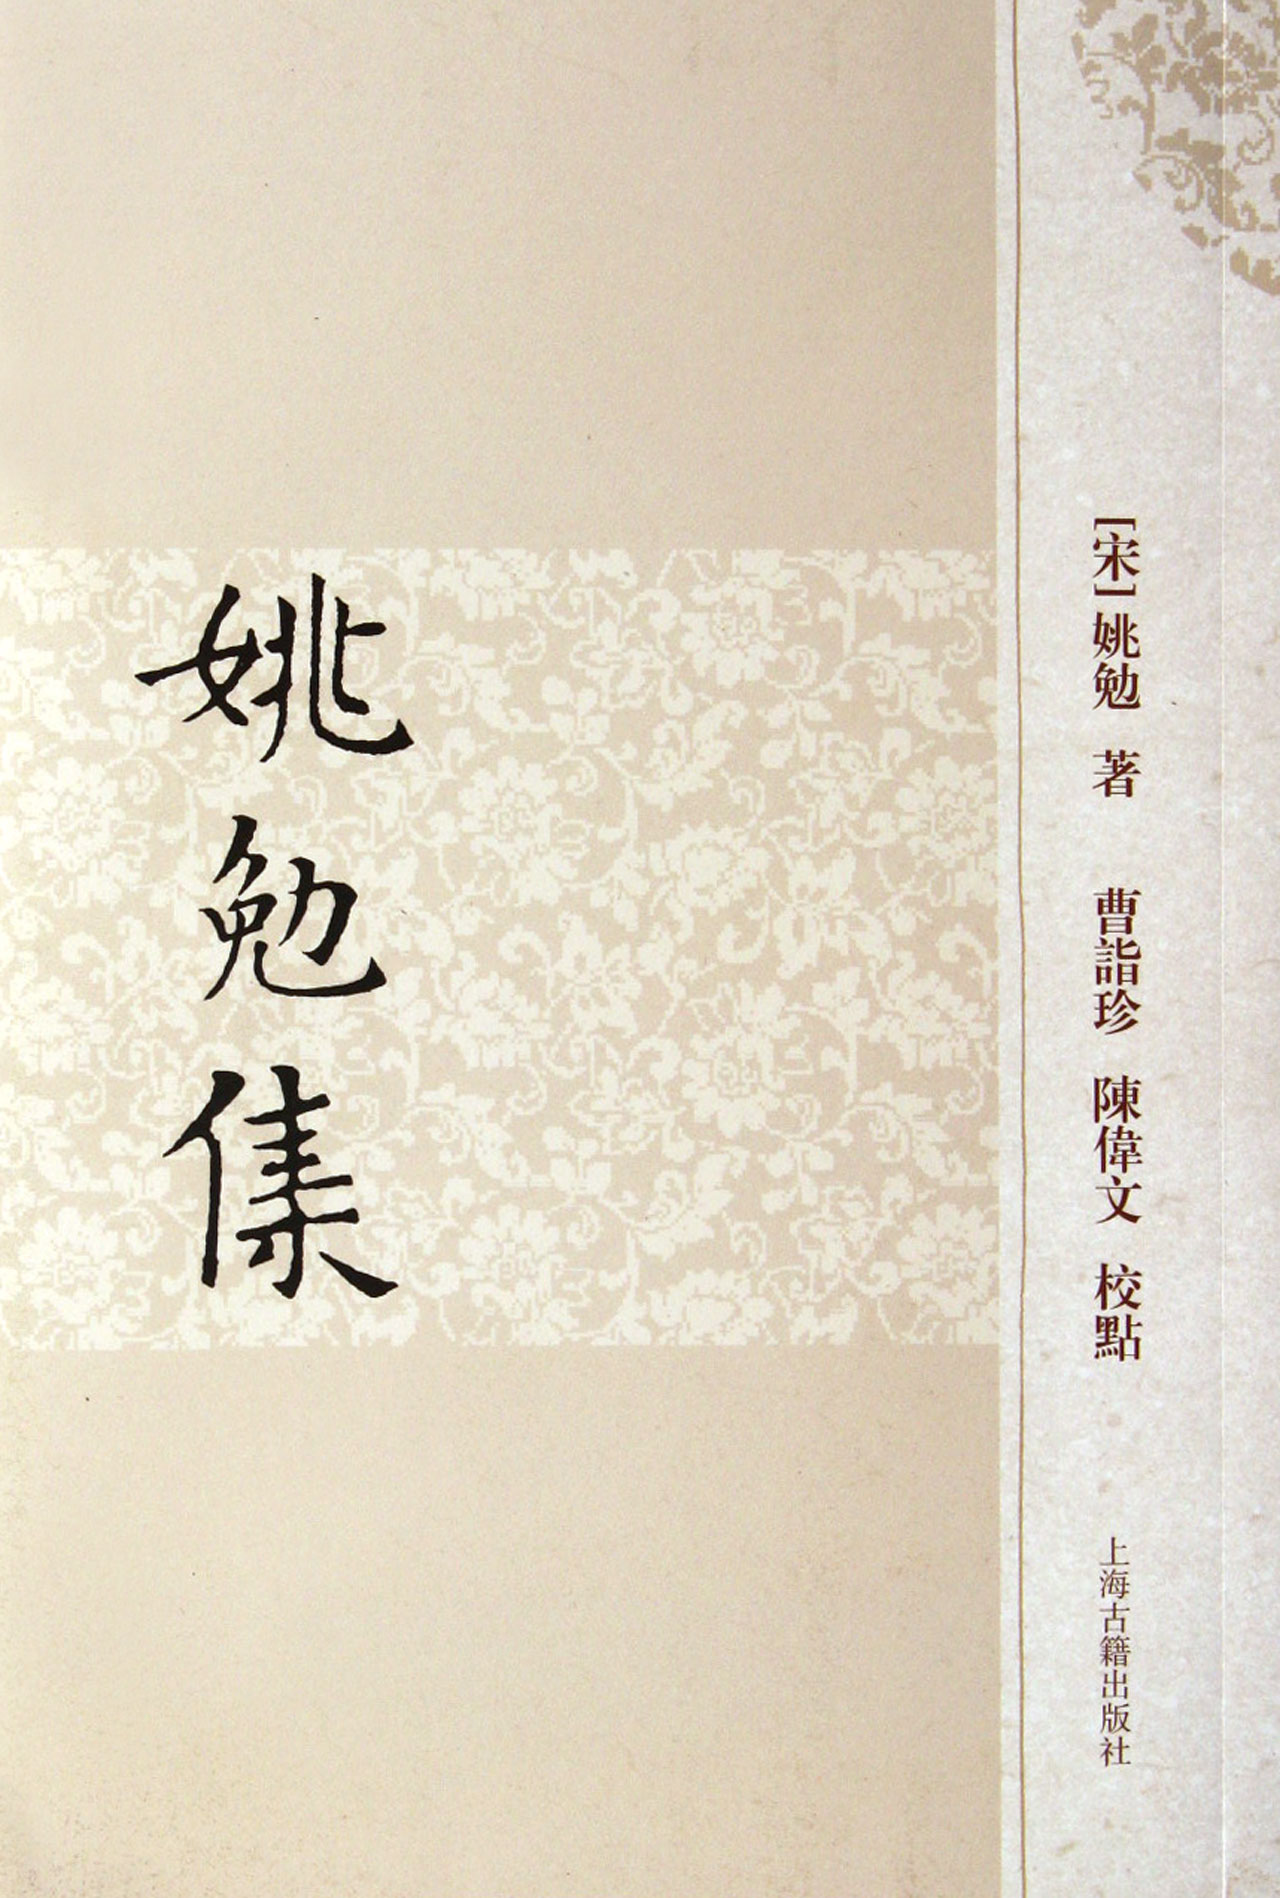 姚勉集
[宋]姚勉 著 曹詣珍 陳偉文 校點
上海古籍出版社